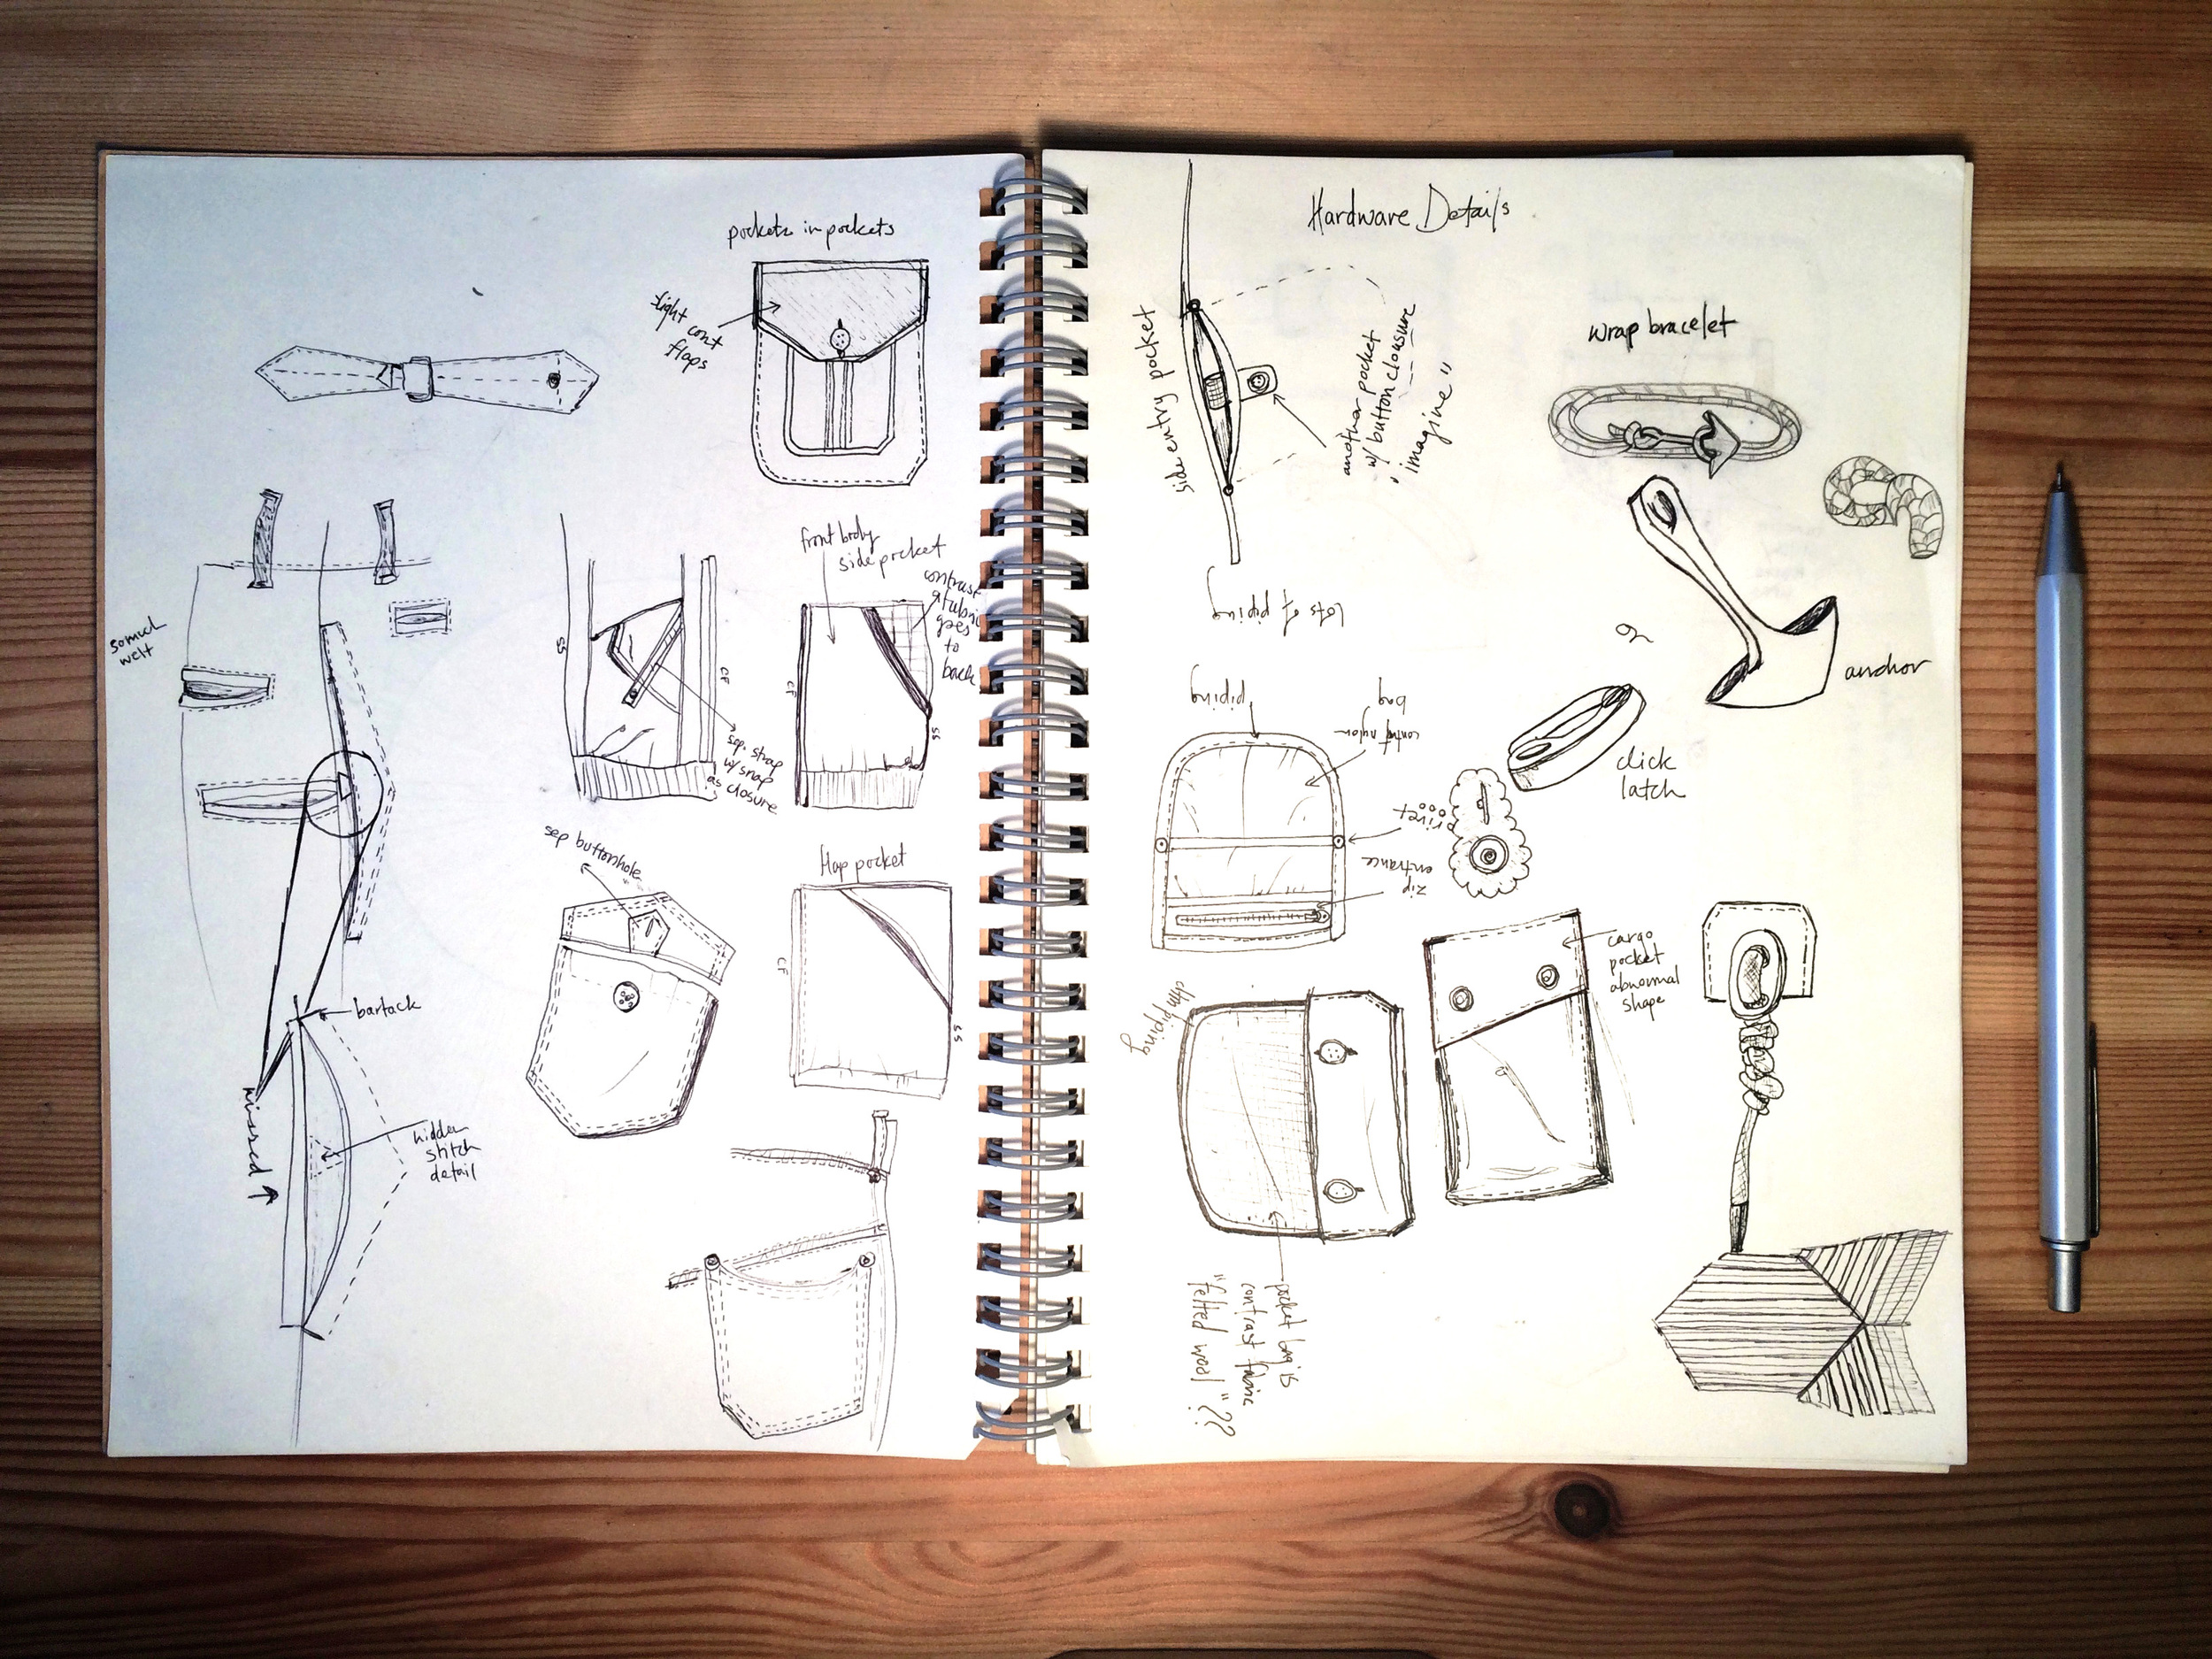 pockets in pockets
slight
cont
flaps
front body
side pocket
contrast
fabric
goes
to
back
welt
SS
CF
CF
SS
sep. strap
w/ snap
as closure
sep buttonhole
flap pocket
CF
SS
bartack
missed
hidden
stitch
detail
Hardware Details
side entry pocket
another pocket
w/ button clousure
"imagine"
wrap bracelet
lots of piping
or
anchor
piping
bag
nylon
click
latch
rivet
entrance
zip
cargo
pocket
abnormal
shape
piping
pocket bag is
contrast fabric
"felted wool"??